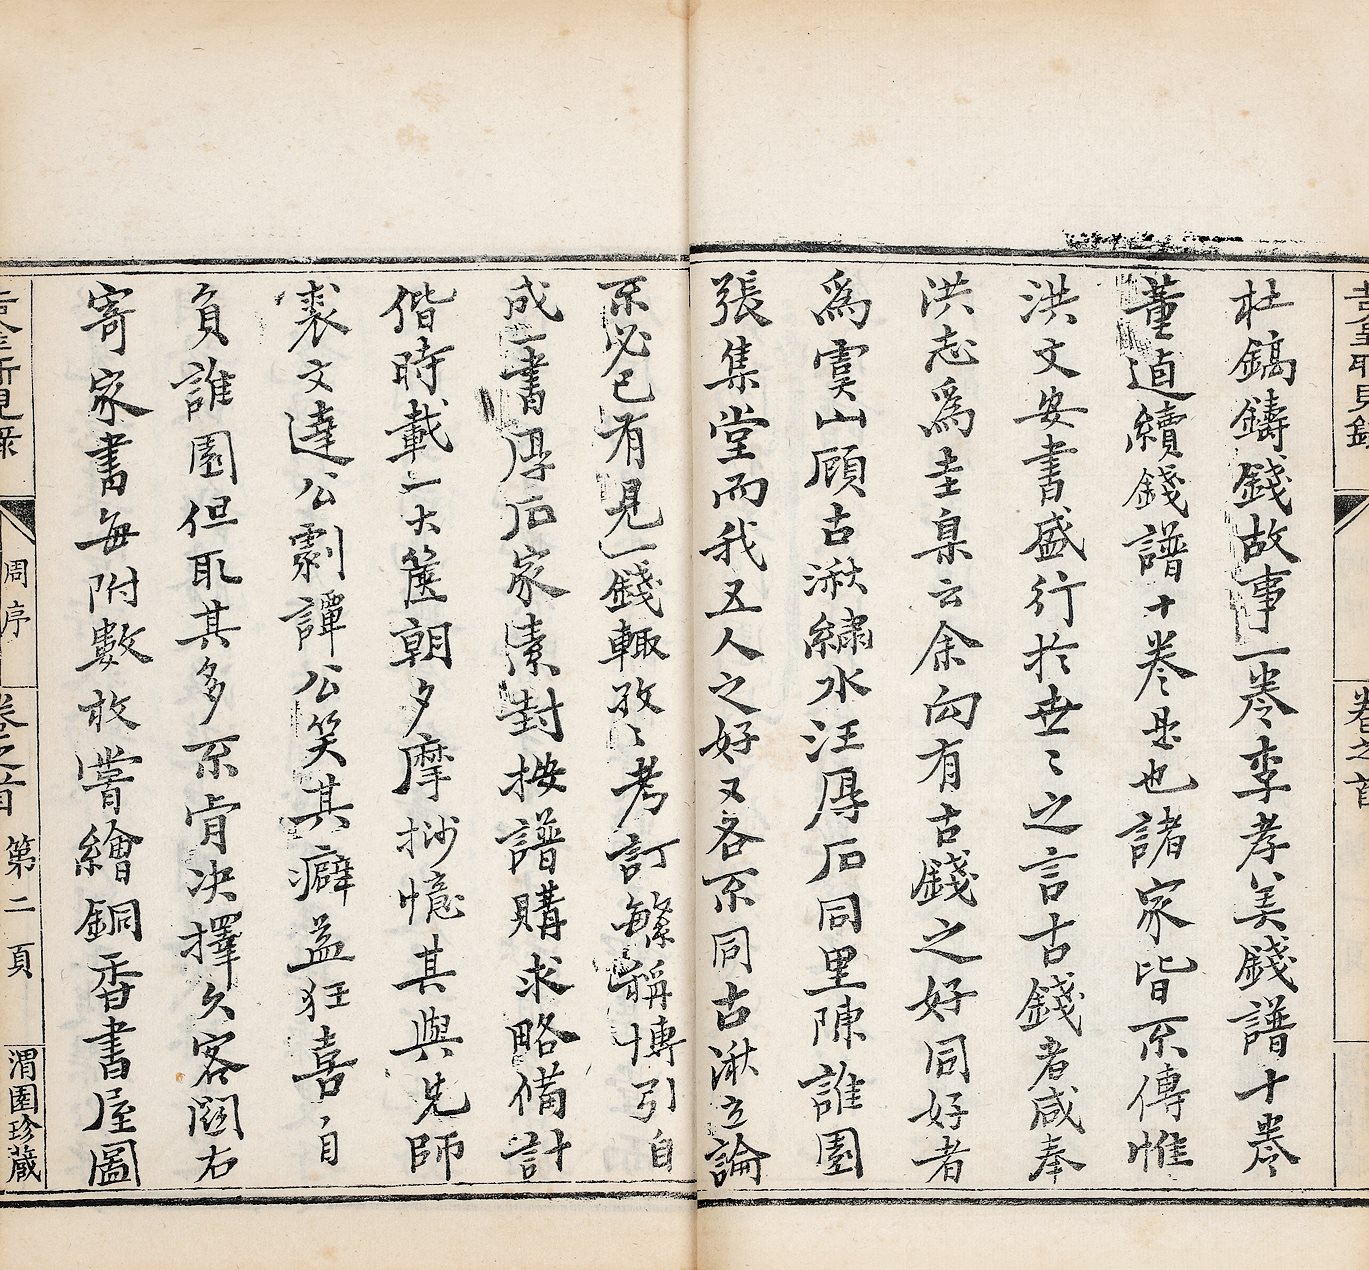 杜鎬鑄錢故事一卷李孝美錢譜十卷
董逌續錢譜十卷是也諸家皆不傳惟
洪文安書盛行於世〻之言古錢者咸奉
洪志爲圭臬云余向有古錢之好同好者
爲虞山顧古湫繡水汪厚石同里陳誰園
張集堂而我五人之好又各不同古湫立論
不必已有見一錢輒孜〻考訂繁稱博引自
成一書厚石家素封按譜購求略備計
偕時載一大篋朝夕摩挱憶其與先師
裘文達公劇譚公笑其癖益狂喜自
負誰園但取其多不肯決擇久客閩右
寄家書每附數枚嘗繪銅香書屋圖
吉金所見錄
周序
卷之首
第二頁
渭園珍藏
吉金所見錄
卷之首